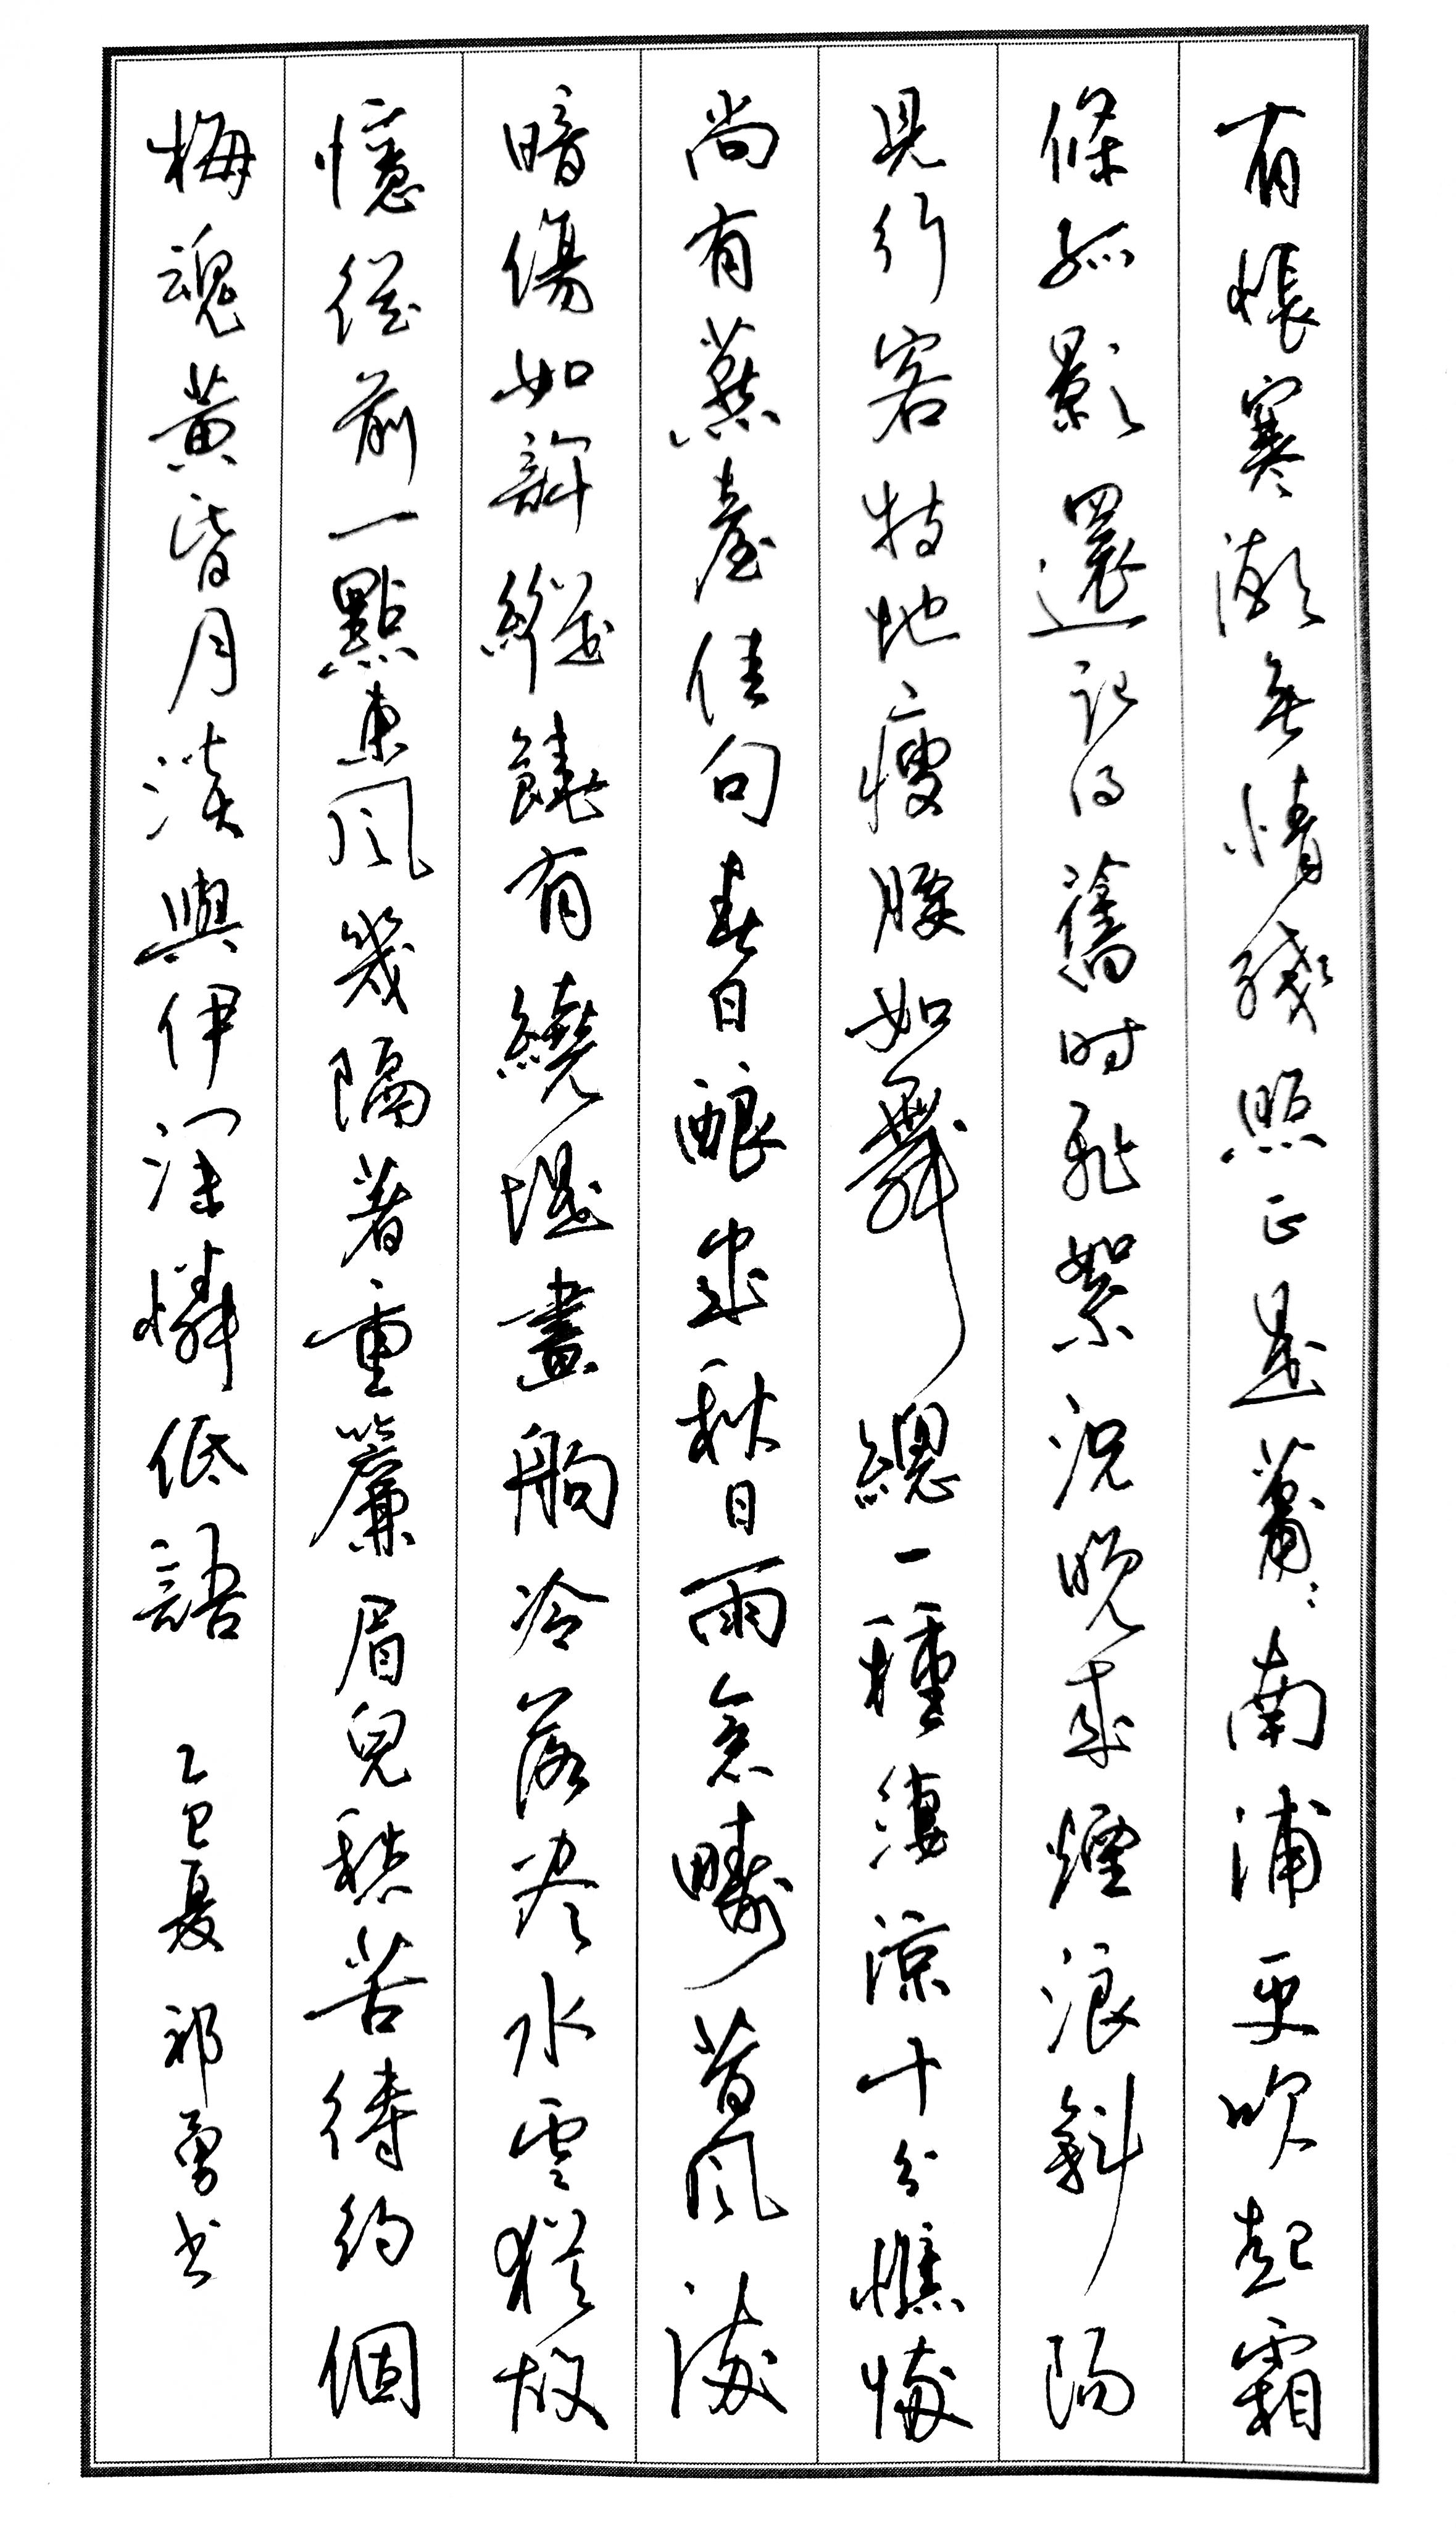 有悵寒潮無情殘照正是蕭〻南浦更吹起霜
條孤影還記得舊时飛絮況晚來煙浪斜陽
見行客特地瘦腰如舞總一種淒涼十分憔悴
尚有燕臺佳句春日釀成秋日雨念疇昔風流
暗傷如許縱饒有繞堤畫舸冷落尽水雲猶故
憶從前一點東風幾隔著重簾眉兒愁苦待約個
梅魂黃昏月淡與伊深憐低語 乙巳夏 祁勇书